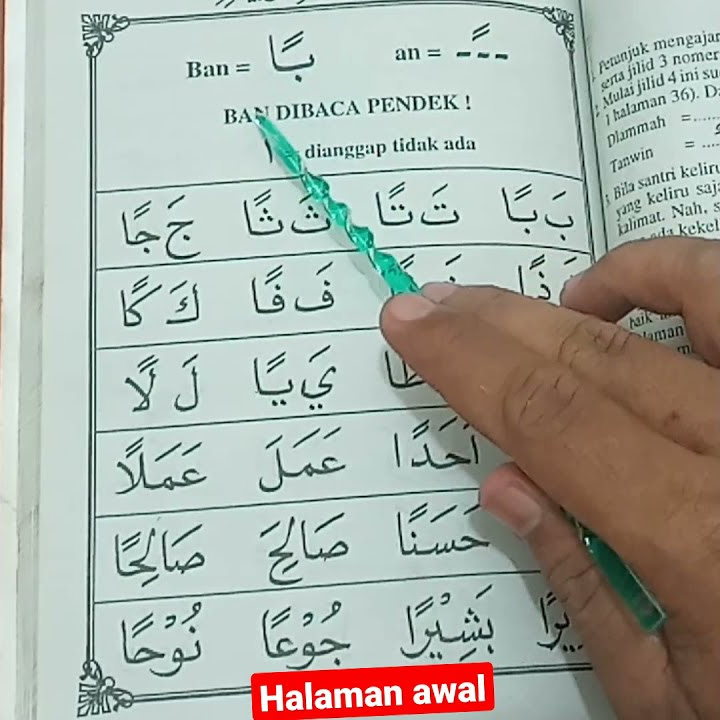 Ban = بًا an = ـًـ
BAN DIBACA PENDEK !
ا dianggap tidak ada
بَ بًا تَ تًا ثَ ثًا جَ جًا
فَ فًا كَ كًا
يَ يًا لَ لًا
اَحَدًا عَمَلَ عَمَلًا
حَسَنًا صَالِحَ صَالِحًا
بَشِيْرًا جُوْعًا نُوْحًا
Petunjuk mengajar
serta jilid 3 nomer
Mulai jilid 4 ini
halaman 36).
Dlammah =
Tanwin =
Bila santri keliru
yang keliru
kalimat. Nah,
Halaman awal